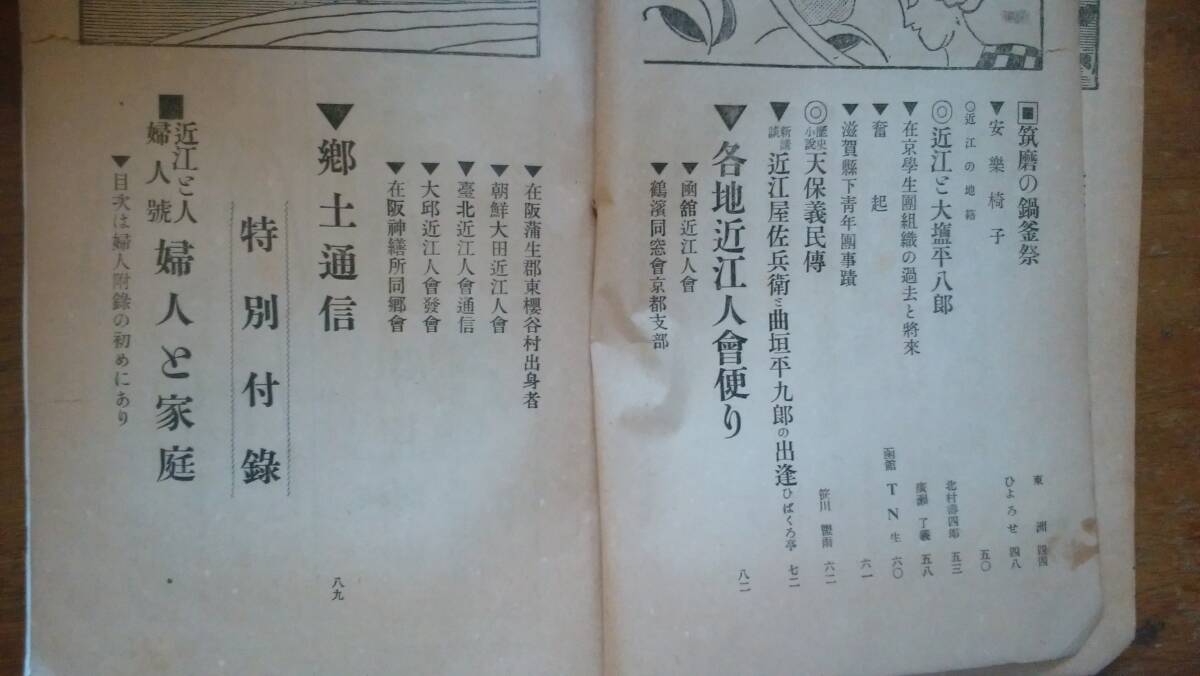 筑磨の鍋釜祭 東洲 四四
▼安樂椅子 ひよろせ 四八
○近江の地籍 五〇
◎近江と大塩平八郎 北村壽四郎 五三
▼在京學生團組織の過去と將來 廣瀬了義 五八
▼奮起 函館 TN生 六〇
▼滋賀縣下青年團事蹟 六一
◎歴史小説 天保義民傳 笹川臞雨 六二
▼新講談 近江屋佐兵衛と曲垣平九郎の出逢 ひばくろ亭 七二
▼各地近江人會便り 八二
▼函舘近江人會
▼鶴濱同窓會京都支部
▼在阪蒲生郡東櫻谷村出身者
▼朝鮮大田近江人會
▼臺北近江人會通信
▼大邱近江人會發會
▼在阪神繕所同郷會
▼鄕土通信 八九
特別付錄
■近江と人 婦人號 婦人と家庭
▼目次は婦人附錄の初めにあり